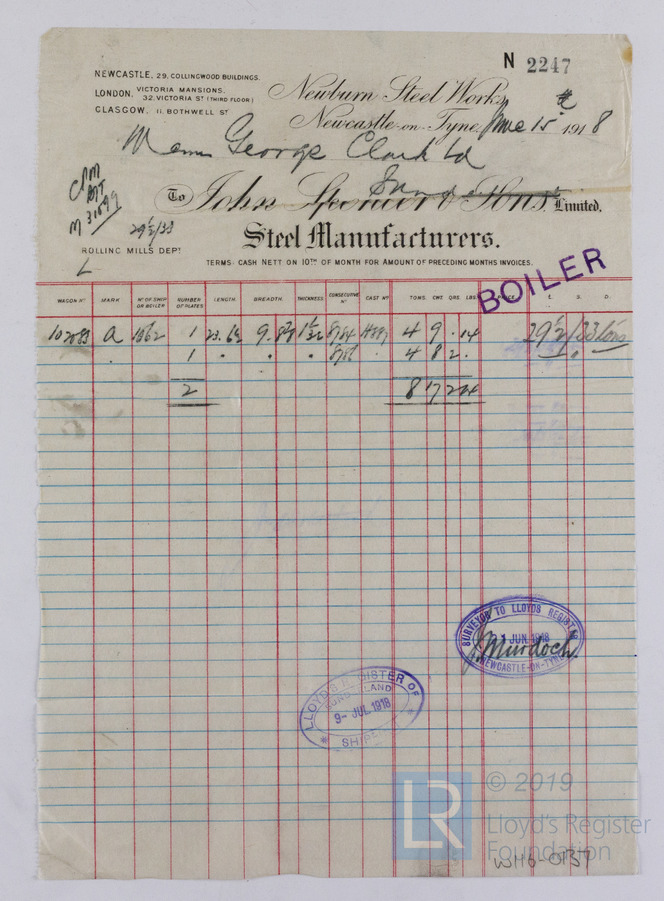 N 2247
NEWCASTLE, 29, COLLINGWOOD BUILDINGS.
LONDON, VICTORIA MANSIONS,
32, VICTORIA ST (THIRD FLOOR)
GLASGOW, 11, BOTHWELL ST
Newburn Steel Works,
Newcastle-on-Tyne, June 15 1918
Messrs George Clark Ld
To John Spencer & Sons, Limited.
29½/33
Steel Manufacturers.
ROLLING MILLS DEPT
TERMS: CASH NETT ON 10TH OF MONTH FOR AMOUNT OF PRECEDING MONTHS INVOICES.
BOILER
WAGON No MARK No OF SHIP OR BOILER NUMBER OF PLATES LENGTH. BREADTH. THICKNESS CONSECUTIVE No CAST No TONS. CWT QRS. LBS PRICE £. S. D.
a 1862 1 4 9 . 14 29½/33 tons
. . 1 . . . . 4 8 2 .
2 8 17 2 14
SURVEYOR TO LLOYDS REGISTER
JUN. 1918
J. Murdoch.
NEWCASTLE-ON-TYNE
LLOYD'S REGISTER OF
SUNDERLAND
9- JUL. 1918
SHIPPING
LR
© 2019
Lloyd's Register
Foundation
WH6-0137